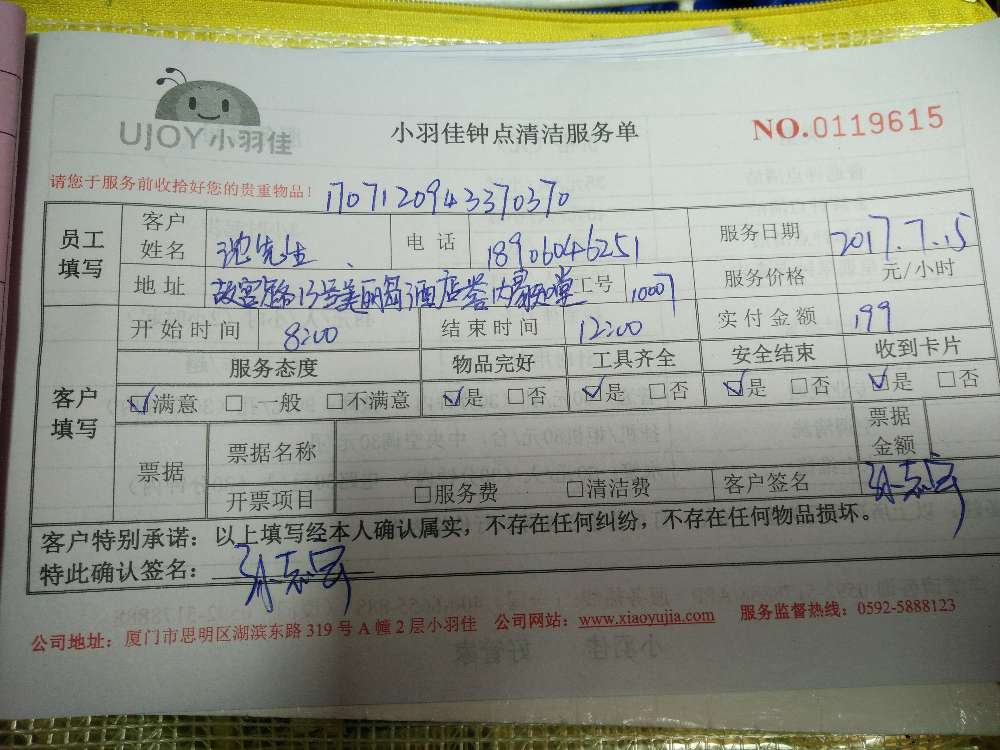 UJOY小羽佳
小羽佳钟点清洁服务单
NO.0119615
请您于服务前收拾好您的贵重物品！
1707120943370370
员工填写 客户姓名 沈先生 电话 18906046251 服务日期 2017.7.15
地址 故宫 13号美丽 酒店 工号 10007 服务价格 元/小时
开始时间 8:00 结束时间 12:00 实付金额 199
客户填写 服务态度 物品完好 工具齐全 安全结束 收到卡片
☑满意 □一般 □不满意 ☑是 □否 ☑是 □否 ☑是 □否 ☑是 □否
票据 票据名称 票据金额
开票项目 □服务费 □清洁费 客户签名
客户特别承诺：以上填写经本人确认属实，不存在任何纠纷，不存在任何物品损坏。
特此确认签名：
公司地址：厦门市思明区湖滨东路319号A幢2层小羽佳 公司网站：www.xiaoyujia.com 服务监督热线：0592-5888123